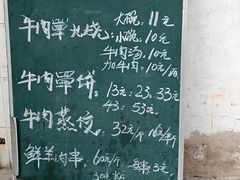 牛肉罩火烧 大碗，11元
小碗，10元
牛肉汤，10元
加牛肉，10元/
牛肉罩饼，13元；23；33元
43；53元
牛肉蒸饺 32元/斤 16元/半斤
鲜羊肉串 60元/斤 每串3元
30元/半斤